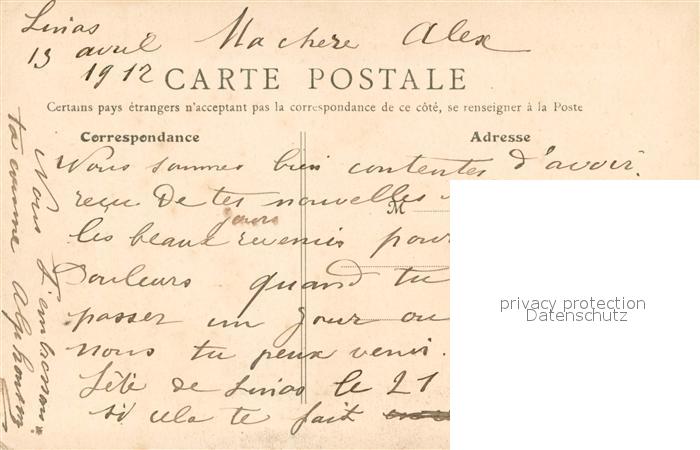 Linas
13 avril Ma chere Alex
1912
CARTE POSTALE
Certains pays étrangers n'acceptant pas la correspondance de ce côté, se renseigner à la Poste
Correspondance Adresse
Nous sommes bien contentes d'avoir
reçu De tes nouvelles
M
jours
les beaux revenir pour
Douleurs quand tu
passer un jour ou
nous tu peux venir.
Fête de Linas le 21
si cela te fait
Nous t'embrassons
ta comme Alphonsine
privacy protection
Datenschutz